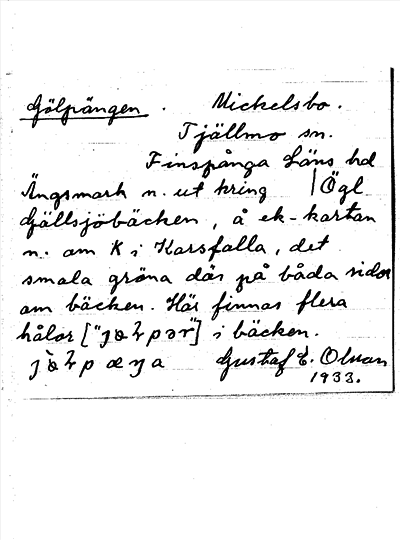 Gölpängen. Mickelsbo.
Tjällmo sn.
Finspånga Läns hd
Ängsmark n. ut kring | Ögl
Gällsjöbäcken, å ek-kartan
n. om K i Karsfalla, det
smala gröna där på båda sidor
om bäcken. Här finnas flera
hålor ["jɵ̀ɽpər"] i bäcken.
Gustaf E. Olsson
1933.